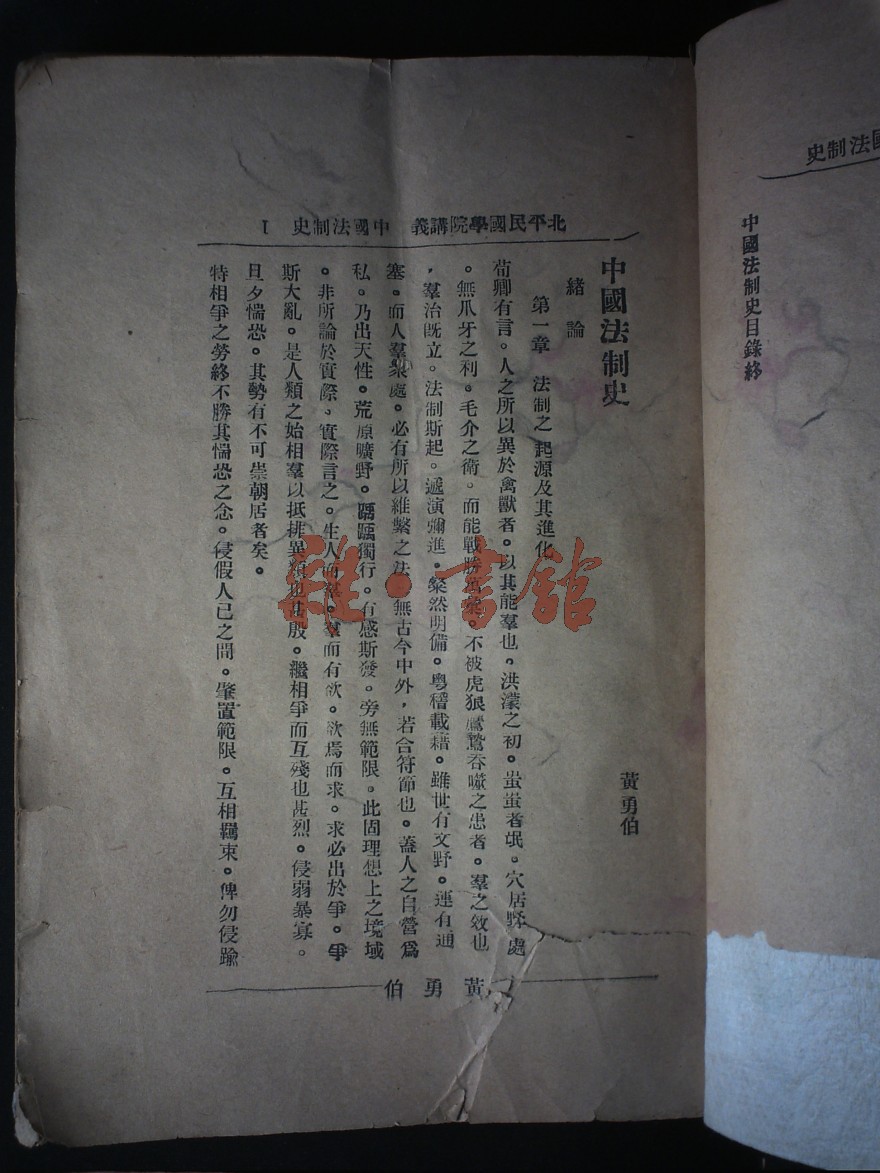 史制法國
中國法制史目錄終
北平民國學院講義 中國法制史 1
中國法制史
黃勇伯
緒論
第一章 法制之起源及其進化
荀卿有言。人之所以異於禽獸者。以其能羣也。洪濛之初。蚩蚩者氓。穴居野處
。無爪牙之利。毛介之衛。而能戰勝。不被虎狼鷹鷙吞噬之患者。羣之效也
。羣治既立。法制斯起。遞演彌進。粲然明備。粵稽載籍。雖世有文野。運有通
塞。而人羣聚處。必有所以維繫之法。無古今中外，若合符節也。蓋人之自營爲
私。乃出天性。荒原曠野。踽踽獨行。有感斯發。旁無範限。此固理想上之境域
。非所論於實際。實際言之。生人而羣。羣而有欲。欲焉而求。求必出於爭。爭
斯大亂。是人類之始相羣以抵排異類也甚殷。繼相爭而互殘也甚烈。侵弱暴寡。
旦夕惴恐。其勢有不可崇朝居者矣。
特相爭之勞終不勝其惴恐之念。侵假人己之間。肇置範限。互相羈束。俾勿侵踰
黃勇伯
雜·書館